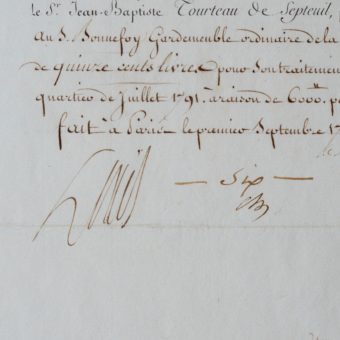 le Sr. Jean-Baptiste Tourteau de Septeuil,
au S. Bonnefoy Gardemeuble ordinaire de la
de quinze cents livres, pour son traitement
quartier de Juillet 1791. à raison de 6000.ll p
fait à Paris le premier Septembre 17
Louis
Six